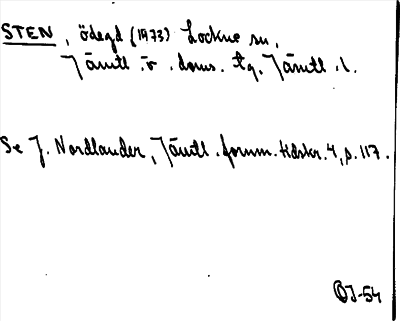 STEN, ödegd (1973) Lockne sn,
Jämtl. ö. doms. tg, Jämtl. l.
Se J. Nordlander, Jämtl. fornm. tidskr. 4, s. 117.
OJ-54